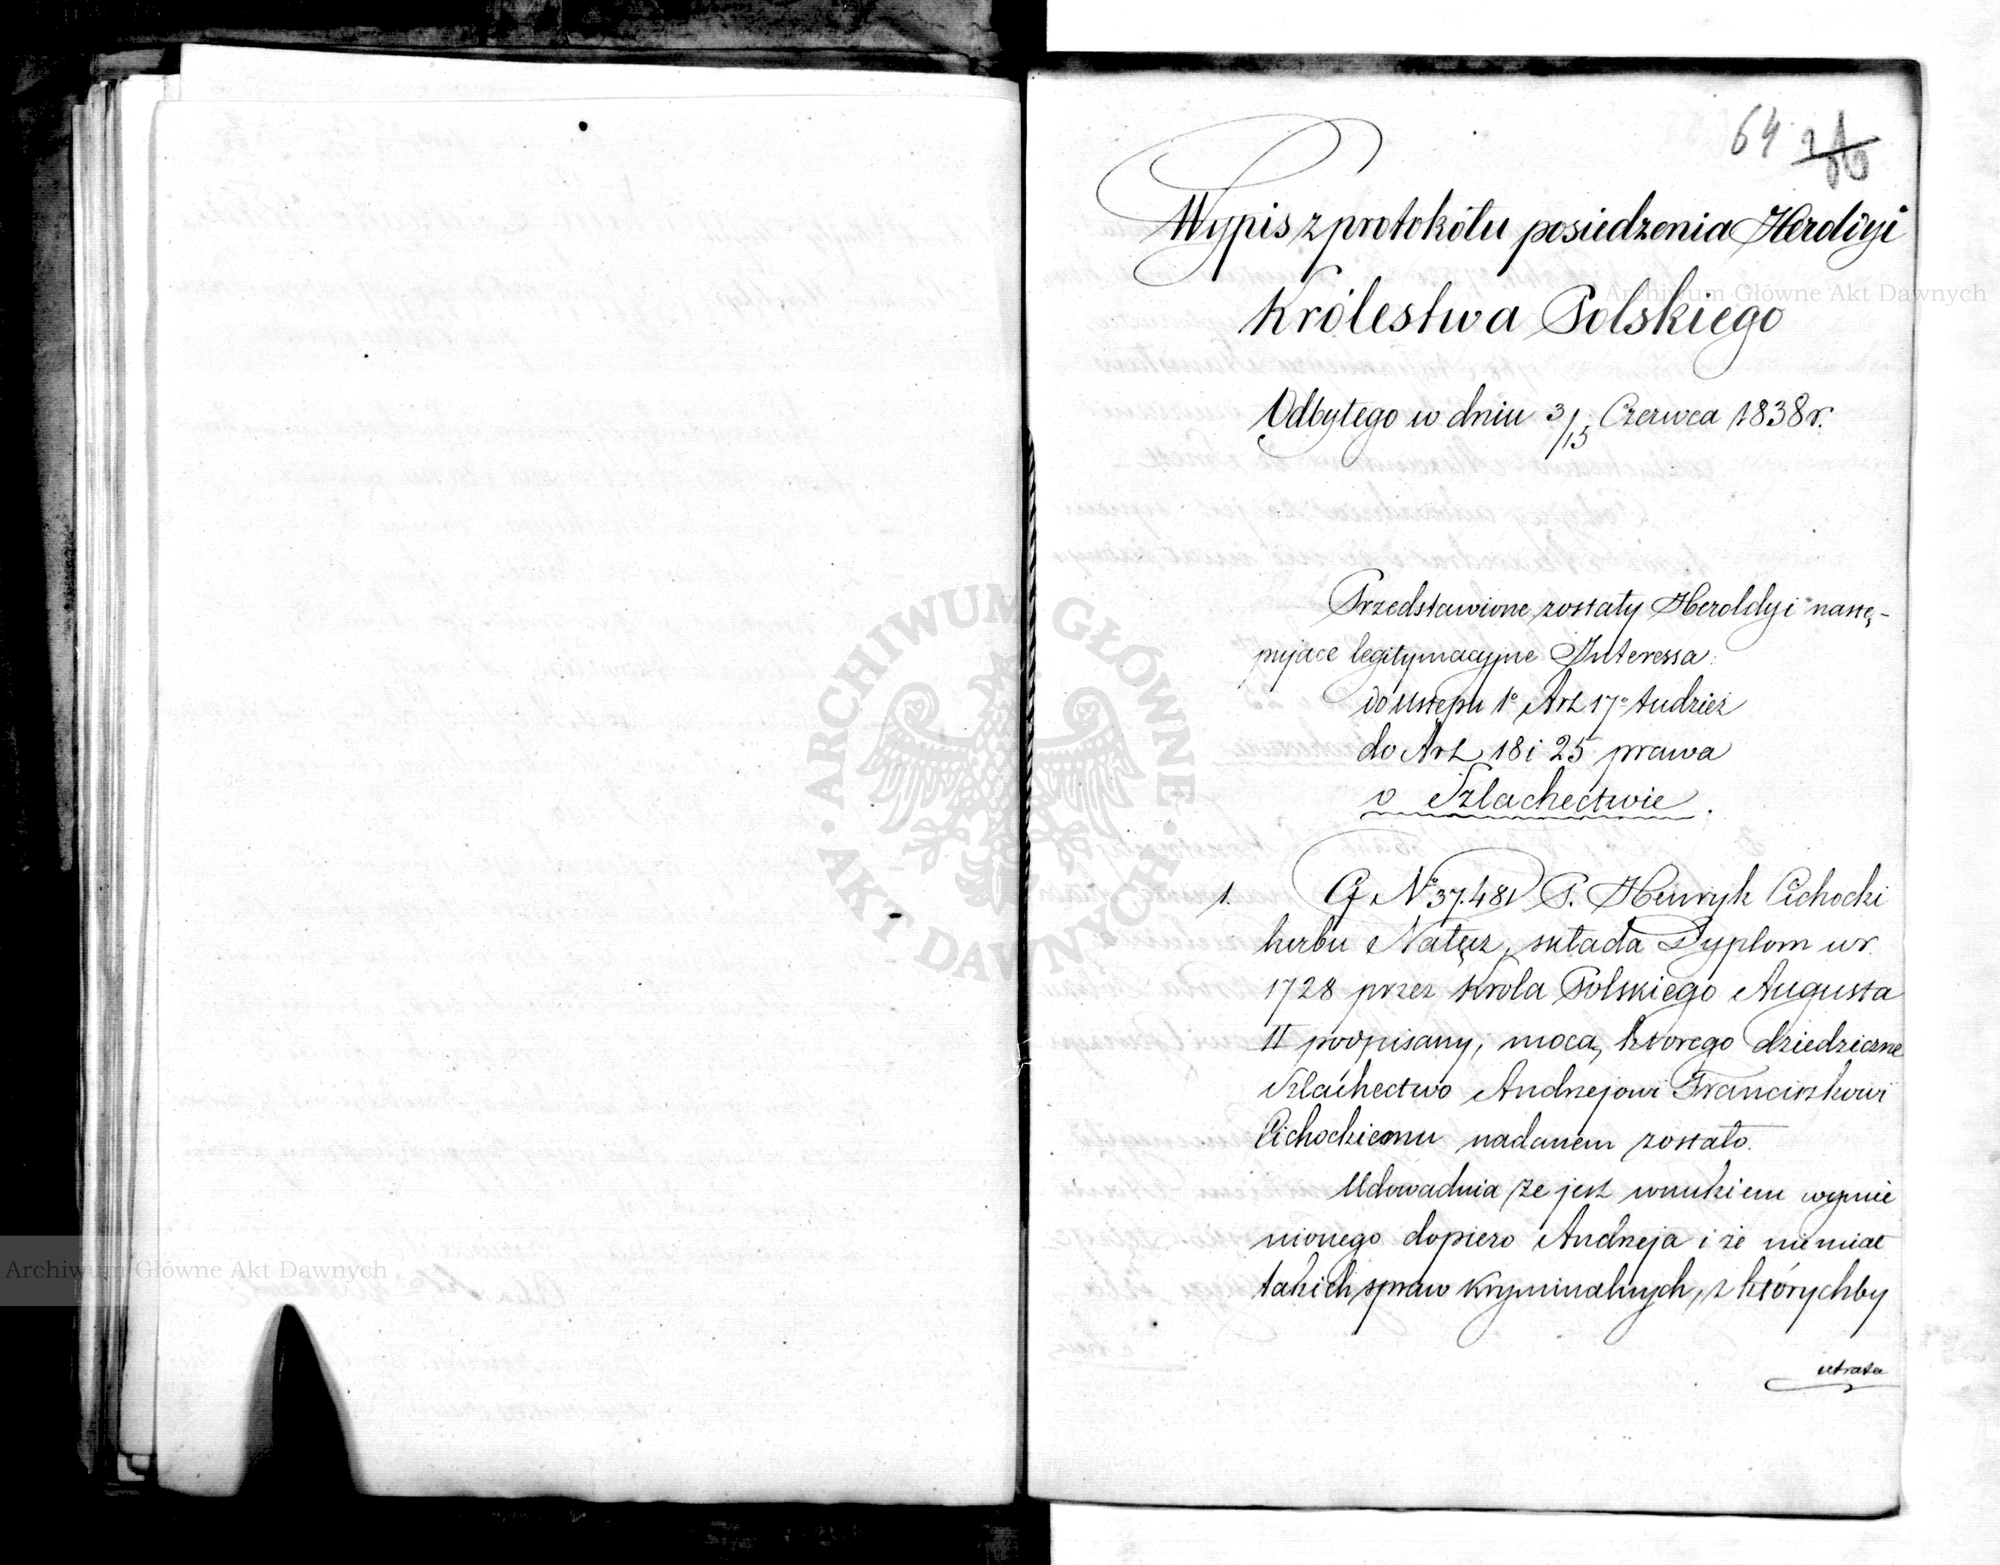 64
Wypis z protokółu posiedzenia Heroldyi
Królestwa Polskiego
Odbytego w dniu 3/15 Czerwca 1838 r.
Przedstawione zostały Heroldyi nastę-
pujące legitymacyjne Interessa:
do ustępu 1º Art 17º tudzież
do Art 18 i 25 prawa
o Szlachectwie.
1. Nº 37.481 P. Henryk Cichocki
herbu Nałęcz, składa Dyplom w r.
1728 przez Króla Polskiego Augusta
II podpisany, mocą którego dziedziczne
Szlachectwo Andrzejowi Franciszkowi
Cichockiemu nadanem zostało.
Udowadnia że jest wnukiem wymie
nionego dopiero Andrzeja i że nie miał
takich spraw kryminalnych, z którychby
utrata
ARCHIWUM GŁÓWNE AKT DAWNYCH
Archiwum Główne Akt Dawnych
Archiwum Główne Akt Dawnych